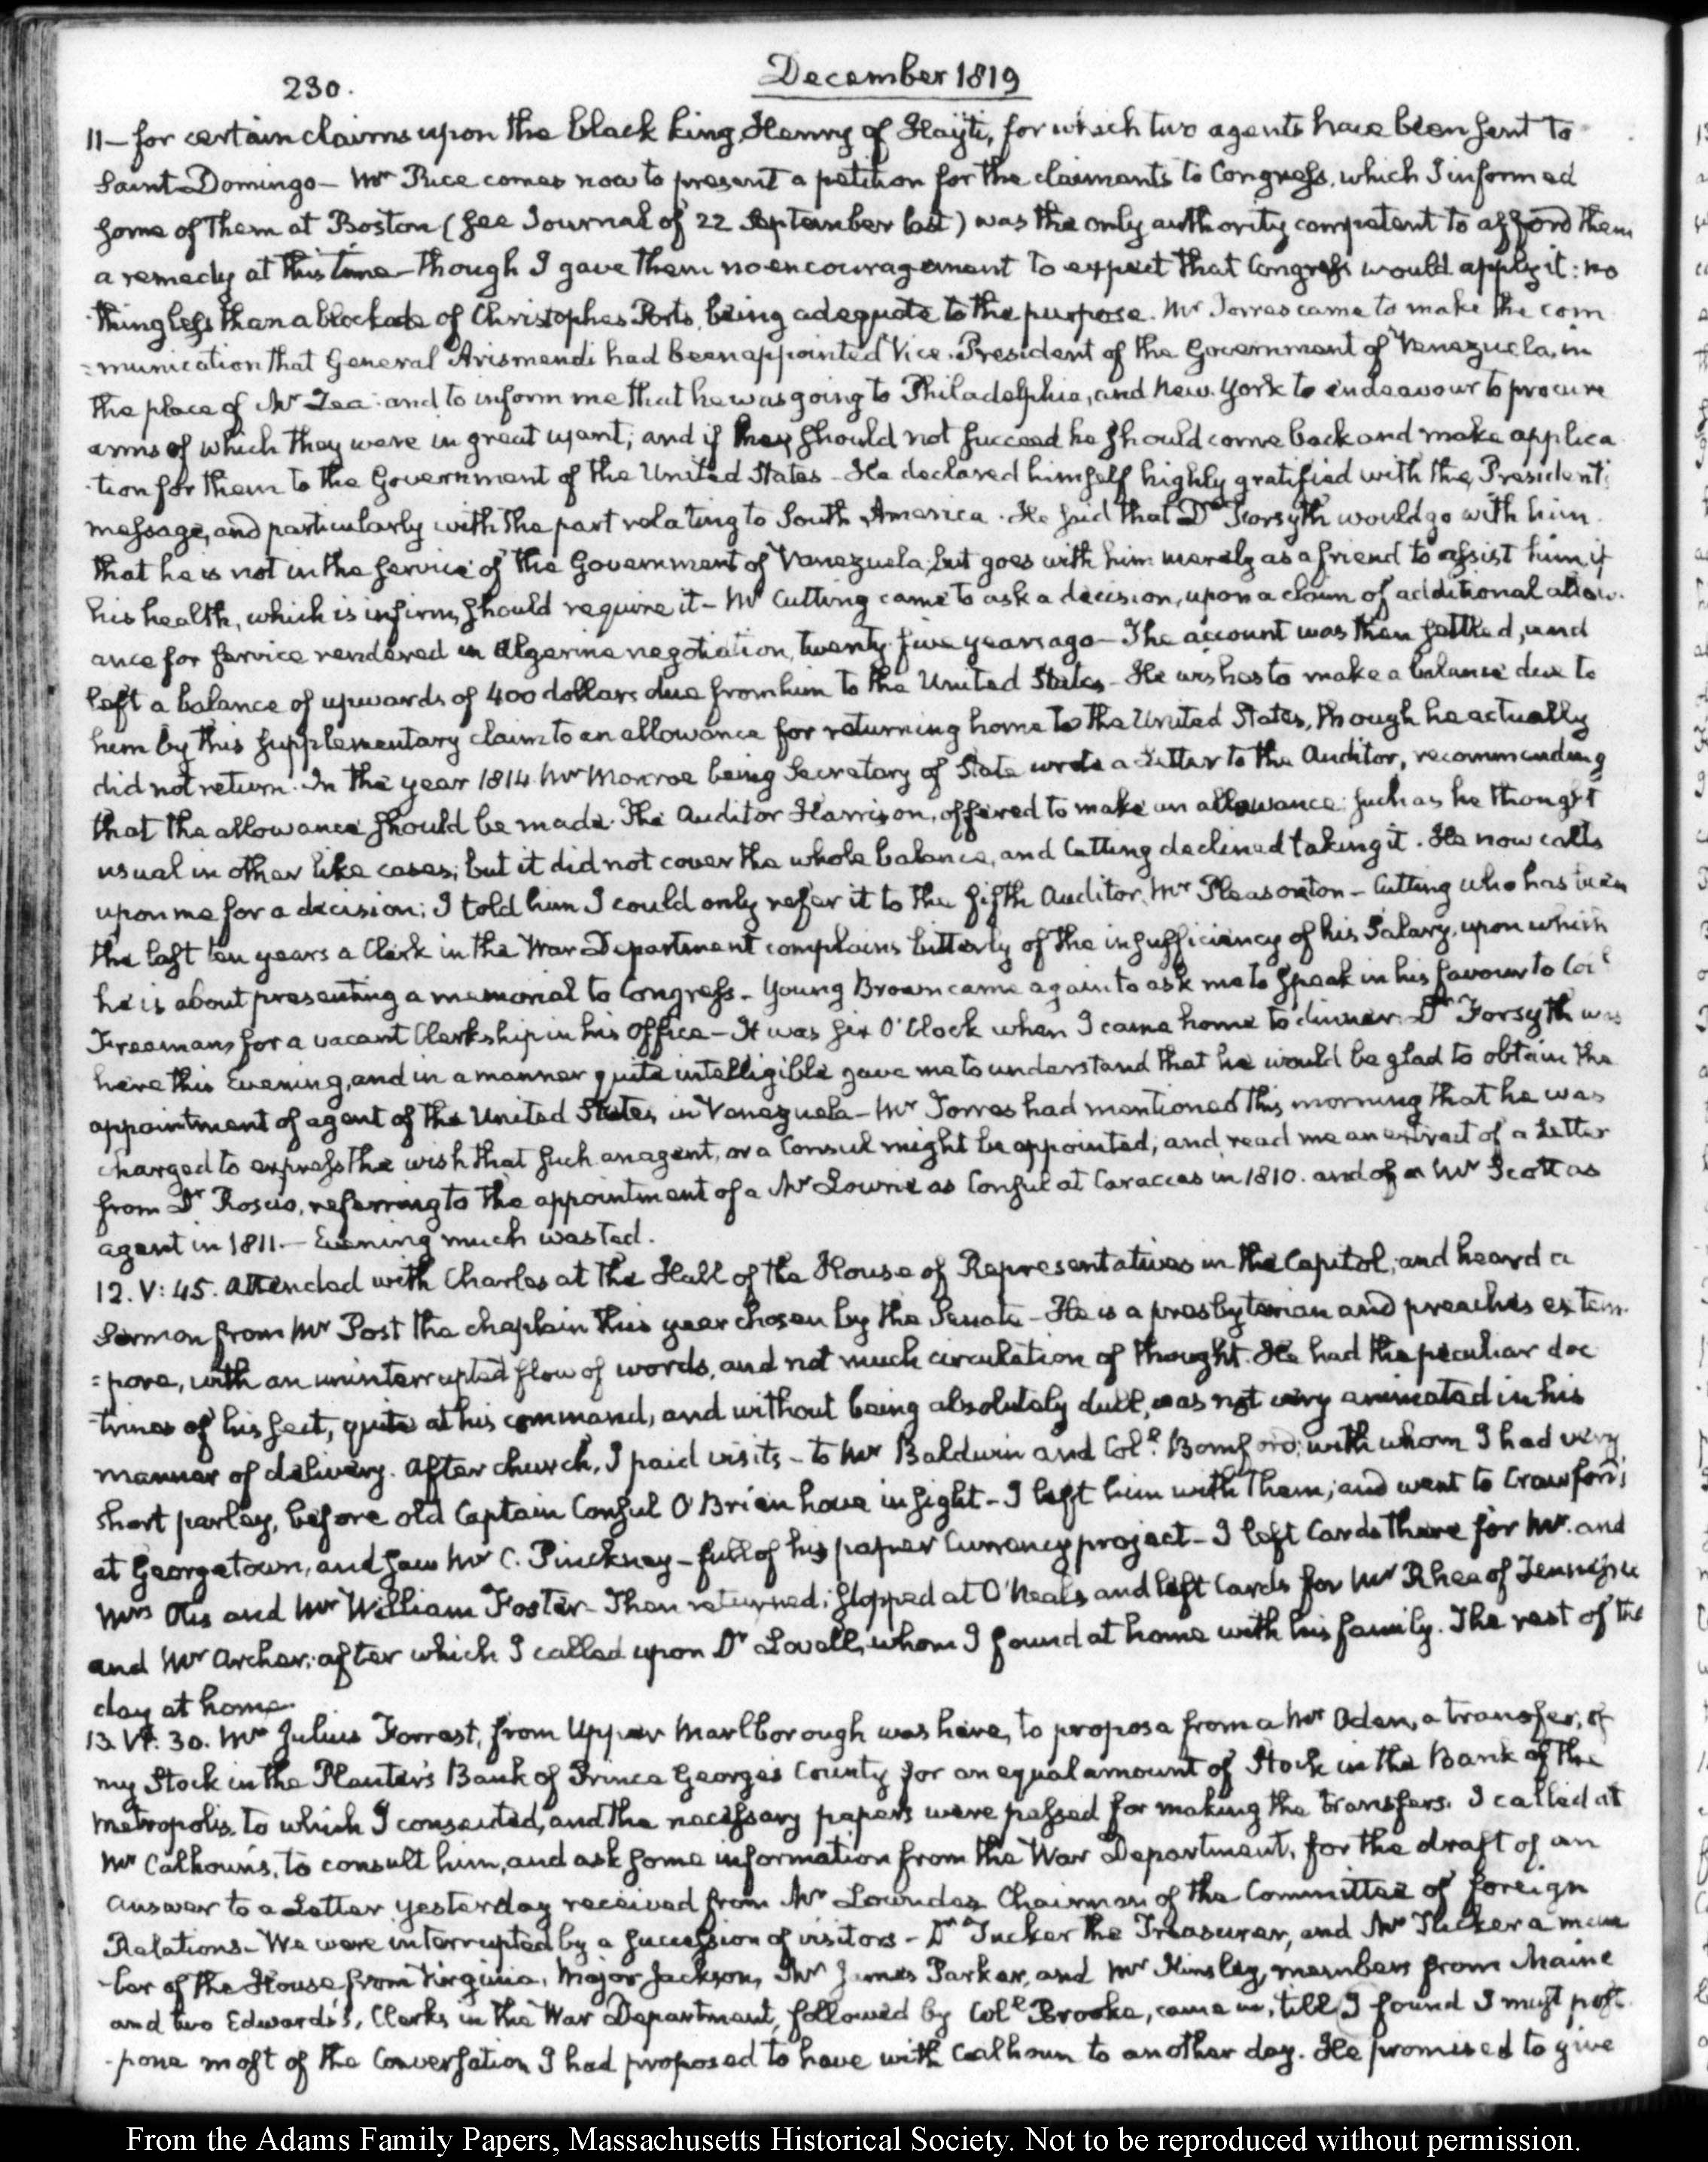 230.
December 1819
11 – for certain claims upon the black king, Henry of Hayti, for which two agents have been sent to
Saint Domingo – Mr Price comes now to present a petition for the claimants to Congress, which I informed
some of them at Boston (see Journal of 22 September last) was the only authority competent to afford them
a remedy at this time – though I gave them no encouragement to expect that Congress would apply it: no
thing less than a blockade of Christophe's Ports, being adequate to the purpose. Mr Torres came to make the com
=munication that General Arismendi had been appointed Vice-President of the Government of Venezuela, in
the place of Mr Zea: and to inform me that he was going to Philadelphia, and New-York to endeavour to procure
arms of which they were in great want; and if they should not succeed he should come back and make applica
-tion for them to the Government of the United States – He declared himself highly gratified with the President's
message, and particularly with the part relating to South America. He said that Dr Forsyth would go with him.
that he is not in the service of the Government of Venezuela, but goes with him merely as a friend to assist him, if
his health, which is infirm, should require it – Mr Cutting came to ask a decision, upon a claim of additional allow-
ance for service rendered in Algerine negotiation, twenty-five years ago – The account was then settled, and
left a balance of upwards of 400 dollars due from him to the United States – He wishes to make a balance due to
him by this supplementary claim to an allowance for returning home to the United States, though he actually
did not return. In the year 1814 Mr Monroe being Secretary of State wrote a Letter to the Auditor, recommending
that the allowance should be made. The Auditor Harrison, offered to make an allowance such as he thought
usual in other like cases; but it did not cover the whole balance, and Cutting declined taking it. He now calls
upon me for a decision; I told him I could only refer it to the fifth Auditor, Mr Pleasonton – Cutting who has been
the last ten years a Clerk in the War Department complains bitterly of the insufficiency of his Salary, upon which
he is about presenting a memorial to Congress – Young Brown came again to ask me to speak in his favour to Coll
Freeman, for a vacant Clerkship in his Office – It was six O'Clock when I came home to dinner. Dr Forsyth was
here this Evening, and in a manner quite intelligible gave me to understand that he would be glad to obtain the
appointment of agent of the United States in Venezuela – Mr Torres had mentioned this morning that he was
charged to express the wish that such an agent, or a Consul might be appointed; and read me an extract of a Letter
from Dr Roscio, referring to the appointment of a Mr Lowne as Consul at Caraccas in 1810. and of a Mr Scott as
agent in 1811. – Evening much wasted.
12. V: 45. Attended with Charles at the Hall of the House of Representatives in the Capitol, and heard a
Sermon from Mr Post the chaplain this year chosen by the Senate – He is a presbyterian and preaches extem-
=pore, with an uninterrupted flow of words, and not much circulation of thought. He had the peculiar doc
-trines of his sect, quite at his command, and without being absolutely dull, was not very animated in his
manner of delivery. After church, I paid visits – to Mr Baldwin and Coll Bomford; with whom I had very
short parley, before old Captain Consul O'Brien hove in sight – I left him with them; and went to Crawford's
at Georgetown, and saw Mr C. Pinckney – full of his paper Currency project – I left Cards there for Mr. and
Mrs Otis and Mr William Foster – Then returned; stopped at O'Neal's and left Cards for Mr Rhea of Tennessee
and Mr Archer; after which I called upon Dr Lovell, whom I found at home with his family. The rest of the
day at home.
13. VI: 30. Mr Julius Forrest, from Upper Marlborough was here, to propose from a Mr Oden, a transfer, of
my Stock in the Planter's Bank of Prince George's County for an equal amount of Stock in the Bank of the
Metropolis, to which I consented, and the necessary papers were passed for making the transfers. I called at
Mr Calhoun's, to consult him, and ask some information from the War Department, for the draft of an
answer to a Letter yesterday received from Mr Lowndes Chairman of the Committee of foreign
Relations – We were interrupted by a succession of visitors – Dr Tucker the Treasurer, and Mr Tucker a mem
-ber of the House from Virginia, Major Jackson, Mr James Parker, and Mr Kinsley, members from Maine
and two Edwards's, Clerks in the War Department, followed by Coll Brooke, came in, till I found I must post
-pone most of the Conversation I had proposed to have with Calhoun to another day. He promised to give
From the Adams Family Papers, Massachusetts Historical Society. Not to be reproduced without permission.